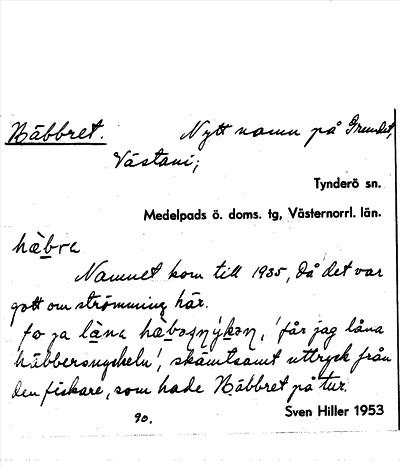 Häbbret. Nytt namn på Grundet,
Västani;
Tynderö sn.
Medelpads ö. doms. tg, Västernorrl. län.
hàbre
Namnet kom till 1935, då det var
gott om strömming här.
fo ja låna
'får jag låna
häbbersnyckeln', skämtsamt uttryck från
den fiskare, som hade Häbbret på tur.
Sven Hiller 1953
90.